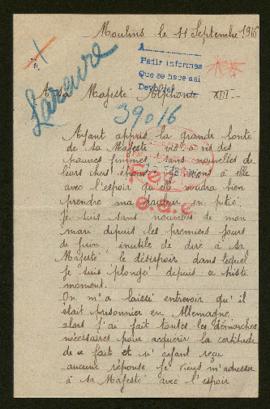 Moulins le 11 Septembre 1916
A
Pedir informes
Que se hace asi
Lareure
Sa Majesté Alphonse XIII
39016
Ayant appris la grande bonté
de sa Majesté vis à vis des
pauvres femmes sans nouvelles de
leurs chers
à elle
avec l'espoir qu'elle voudra bien
prendre ma douleur en pitié.
Je suis sans nouvelles de mon
mari depuis les premiers jours
de Juin, inutile de dire à sa
Majesté le désespoir dans lequel
je suis plongé depuis ce triste
moment.
On m'a laissé entrevoir qu'il
était prisonnier en Allemagne
alors j'ai fait toutes les démarches
nécessaires pour acquérir la certitude
de ce fait et n'ayant reçu
aucune réponse je viens m'adresser
à sa Majesté avec l'espoir